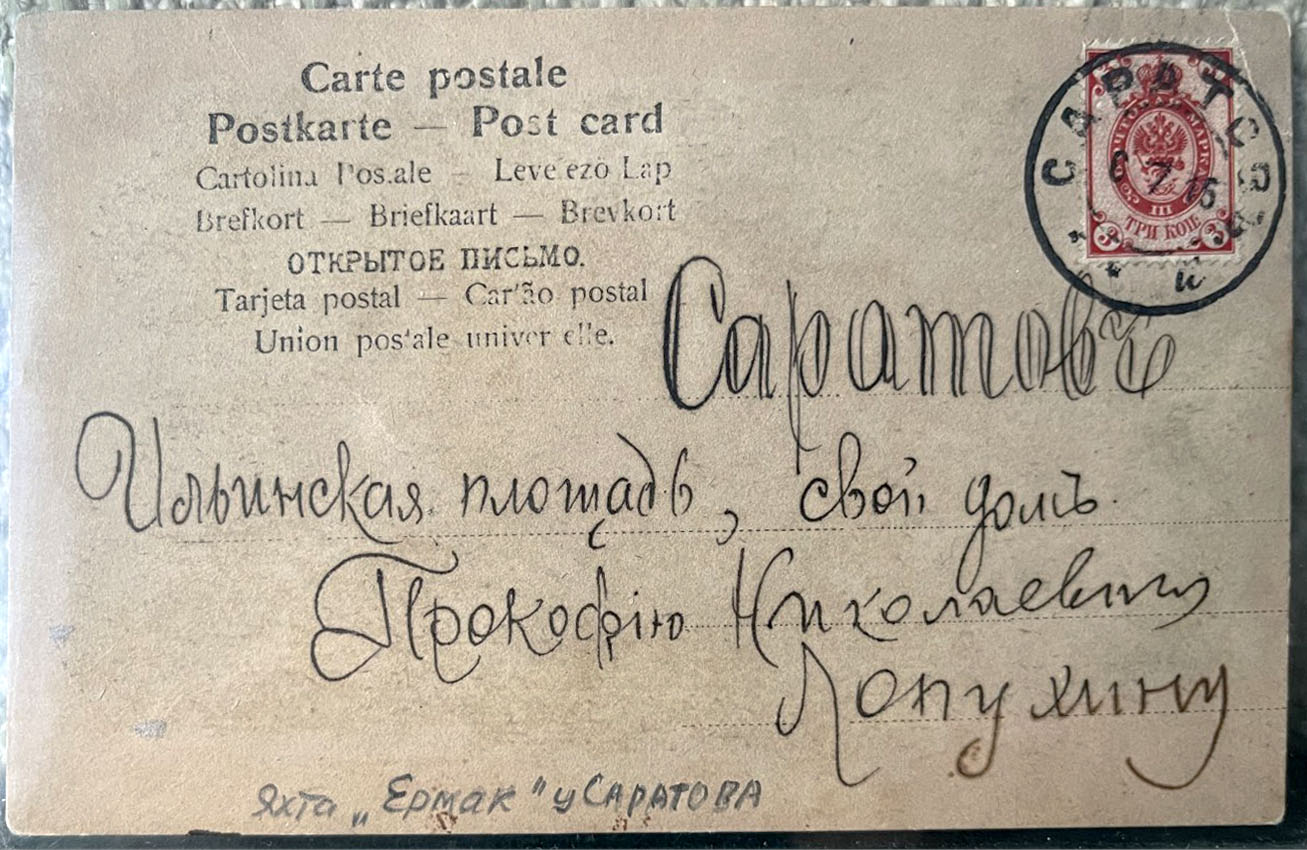 Carte postale
Postkarte — Post card
Cartolina Pos.ale — Leve ezö Lap
Brefkort — Briefkaart — Brevkort
ОТКРЫТОЕ ПИСЬМО.
Tarjeta postal — Car'ão postal
Union pos'ale univer elle.
САРАТОВЪ
ПОЧТОВАЯ МАРКА
6 7 15
III
ТРИ КОП.
3 3
Саратовъ
Ильинская площадь, свой домъ.
Прокофію Николаевичу
Лопухину
Яхта „Ермак" у САРАТОВА